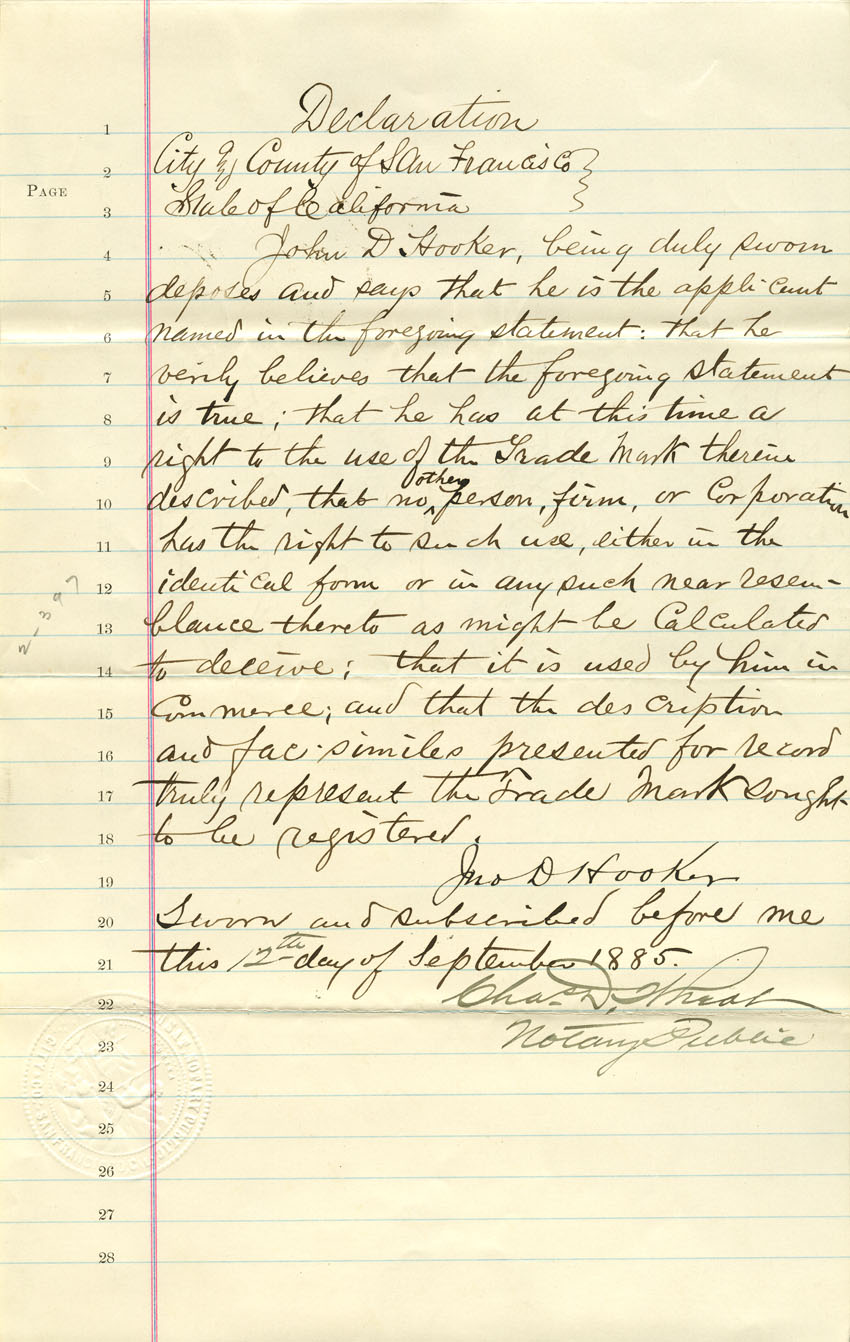 Declaration
City & County of San Francisco }
State of California }
John D Hooker, being duly sworn
deposes and says that he is the applicant
named in the foregoing statement: that he
verily believes that the foregoing statement
is true; that he has at this time a
right to the use of the Trade Mark therein
described, that no other person, firm, or Corporation
has the right to such use, either in the
identical form or in any such near resem-
blance thereto as might be Calculated
to deceive; that it is used by him in
Commerce; and that the description
and fac-similes presented for record
truly represent the Trade Mark sought
to be registered.
Jno D Hooker
Sworn and subscribed before me
this 12th day of September 1885.
Chas. D.
Notary Public
PAGE
1
2
3
4
5
6
7
8
9
10
11
12
13
14
15
16
17
18
19
20
21
22
23
24
25
26
27
28